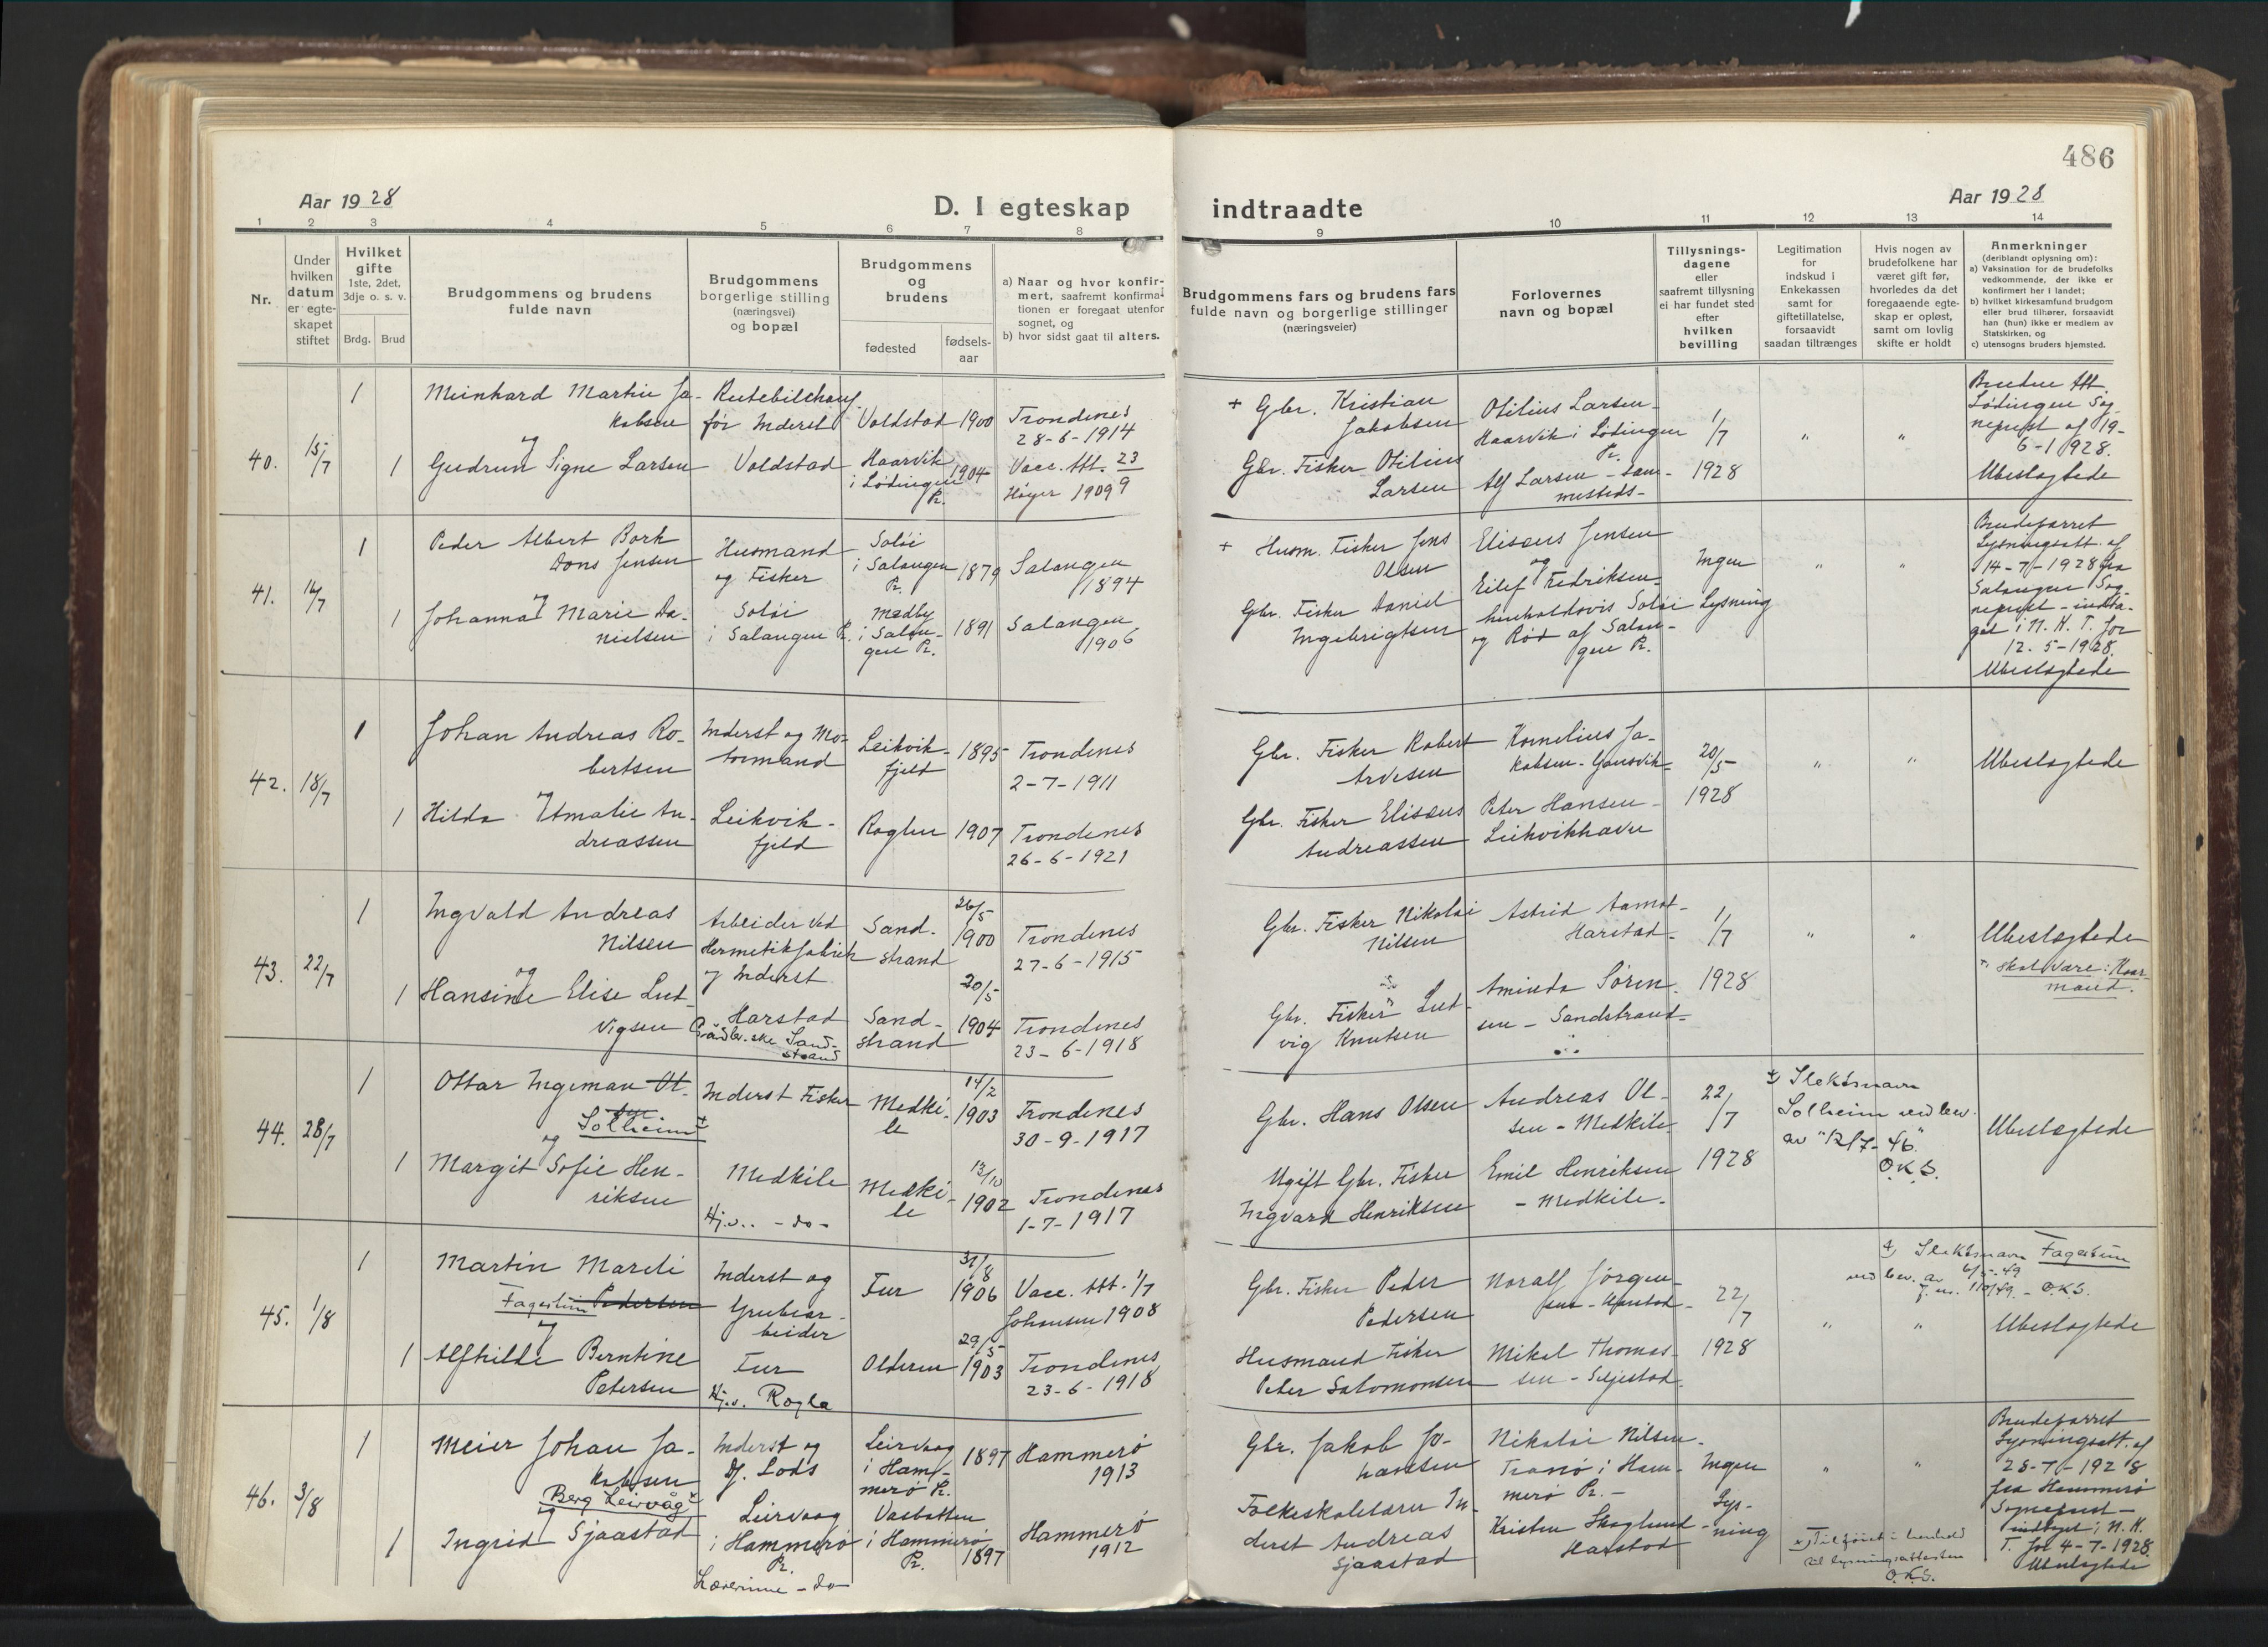 486
Aar 1928
D. I egteskap indtraadte
Aar 1928
1 2 3 4 5 6 7 8 9 10 11 12 13 14
Nr.
Under
hvilken
datum
er egte-
skapet
stiftet
Hvilket
gifte
1ste, 2det,
3dje o. s. v.
Brdg. Brud
Brudgommens og brudens
fulde navn
Brudgommens
borgerlige stilling
(næringsvei)
og bopæl
Brudgommens
og
brudens
fødested
fødsels-
aar
a) Naar og hvor konfir-
mert, saafremt konfirma-
tionen er foregaat utenfor
sognet, og
b) hvor sidst gaat til alters.
Brudgommens fars og brudens fars
fulde navn og borgerlige stillinger
(næringsveier)
Forlovernes
navn og bopæl
Tillysnings-
dagene
eller
saafremt tillysning
ei har fundet sted
efter
hvilken
bevilling
Legitimation
for
indskud i
Enkekassen
samt for
giftetillatelse,
forsaavidt
saadan tiltrænges
Hvis nogen av
brudefolkene har
været gift før,
hvorledes da det
foregaaende egte-
skap er opløst,
samt om lovlig
skifte er holdt
Anmerkninger
(deriblandt oplysning om):
a) Vaksination for de brudefolks
vedkommende, der ikke er
konfirmert her i landet;
b) hvilket kirkesamfund brudgom
eller brud tilhører, forsaavidt
han (hun) ikke er medlem av
Statskirken, og
c) utensogns bruders hjemsted.
40. 15/7
1
Meinhard Martin Ja-
kobsen
og
1 Gudrun Signe Larsen
Rutebilchauf
før Inderst
Voldstad
Voldstad 1900
Haarvik
i Lødingen 1904
Pr.
Trondenes
28-6-1914
Vacc. Att. 23/9
Høyer 1909
+ Gbr. Kristian
Jakobsen
Gbr. Fisker Otilius
Larsen
Otilius Larsen
Haarvik i Lødingen
Pr.
Alf Larsen - sam-
musteds-
1/7
1928
" "
Bruden Att.
Lødingen Sog-
neprest af 19-
6-1928.
Ubeslægtede
41. 16/7
1
Peder Albert Bork
Dons Jensen
og
1 Johanna Marie Da-
nielsen
Husmand
og Fisker
Soløi
i Salangen Pr.
Soløi
i Salangen 1879
Pr.
Medby
i Salan- 1891
gen Pr.
Salangen
1894
Salangen
1906
+ Husm. Fisker Jens
Olsen
Gbr. Fisker Daniel
Ingebrigtsen
Elisæus Jensen
og
Eilef Fredriksen-
henholdsvis Soløi
og Rød af Salan-
gen Pr.
Ingen
Lysning
" "
Brudeparret
Lysningsatt. af
14-7-1928 fra
Salangen Sog-
neprest - indta-
get i N. K. T. for
12. 5-1928.
Ubeslægtede
42. 18/7
1
Johan Andreas Ro-
bertsen
og
1 Hilda Amalie An-
dreassen
Inderst og Mo-
tormand
Leikvik-
fjeld
Leikvik- 1895
fjeld
Roglen 1907
Trondenes
2-7-1911
Trondenes
26-6-1921
Gbr. Fisker Robert
Arvesen
Gbr. Fisker Elisæus
Andreassen
Kornelius Ja-
kobsen- Gausvik-
Peter Hansen
Leikvikhavn
20/5
1928
" "
Ubeslægtede
43. 22/7
1
Ingvald Andreas
Nilsen
og
1 Hansine Elise Lud-
vigsen
Arbeider ved
Hermetikfabrik
og Inderst
Harstad
Sand-
strand
Sand- 26/5
strand 1900
Sand- 20/5
strand 1904
Trondenes
27-6-1915
Trondenes
23-6-1918
Gbr. Fisker Nikolai
Nilsen
Gbr. Fisker Lud-
vig Knutsen
Astrid Aamot-
Harstad-
Aminda Søren-
sen - Sandstrand-
1/7
1928
" "
Ubeslægtede
skal være: Haar-
mand.
44. 28/7
1
Ottar Ingeman Ol-
sen
Solheim +
og
1 Margit Sofie Hen-
riksen
Inderst Fisker
Medkile
Hj.v. - do -
Medki- 14/2
le 1903
Medki- 13/10
le 1902
Trondenes
30-9-1917
Trondenes
1-7-1917
Gbr. Hans Olsen
Ugift Gbr. Fisker
Ingvard Henriksen
Andreas Ol-
sen - Medkile-
Emil Henriksen
- Medkile-
22/7
1928
+) Slektsnavn
Solheim ved bev.
av 12/7-46.
O.K.S.
Ubeslægtede
45. 1/8
1
Martin Mareli
Fagerheim Pedersen
og
1 Alfhilde Berntine
Petersen
Inderst og
Grubear-
beider
Fur
Hj.v. Rogla
Fur 31/8
1906
Olderen 29/5
1903
Vacc. Att. 1/7
Johansen 1908
Trondenes
23-6-1918
Gbr. Fisker Peder
Pedersen
Husmand Fisker
Peter Salomonsen
Noralf Jørgen-
sen - Harstad-
Mikal Thomas-
sen - Seljestad.
22/7
1928
+) Slektsnavn
ved bev. av 6/5-49
O.K.S.
" "
Ubeslægtede
46. 3/8
1
Meier Johan Ja-
kobsen
Berg Leirvåg x
og
1 Ingrid Sjaastad
Inderst og
Df. Lods
Leirvaag
i Hammerø
Pr.
Lærerinne - do-
Leirvaag 1897
i Ham-
merø Pr.
Vasbotten
i Hammerø
Pr. 1897
Hammerø
1913
Hammerø
1912
Gbr. Jakob Jo-
hansen
Folkeskolelærer In-
derst Andreas
Sjaastad
Nikolai Nilsen-
Tranø i Ham-
merø Pr. -
Kristen Skoglund
Harstad
Ingen
Lys-
ning
" "
x) Tilføiet i henhold
til lysningsattesten
O.K.S.
Brudeparret
Lysningsatt. af
28-7-1928
fra Hammerø
Sogneprest -
indtaget i N. K.
T. for 4-7-1928.
Ubeslægtede